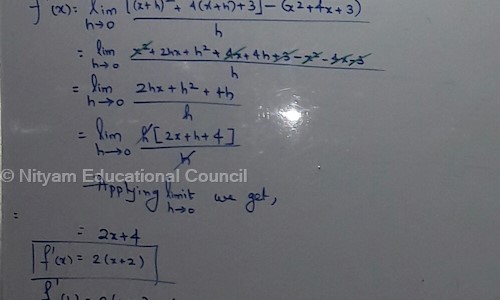 f'(x) = lim h→0 [(x+h)² + 4(x+h)+3] - (x²+4x+3) / h
= lim h→0 x² + 2hx + h² + 4x + 4h + 3 - x² - 4x - 3 / h
= lim h→0 2hx + h² + 4h / h
= lim h→0 h[2x+h+4] / h
© Nityam Educational Council
Applying limit h→0 we get,
=
= 2x+4
f'(x) = 2(x+2)